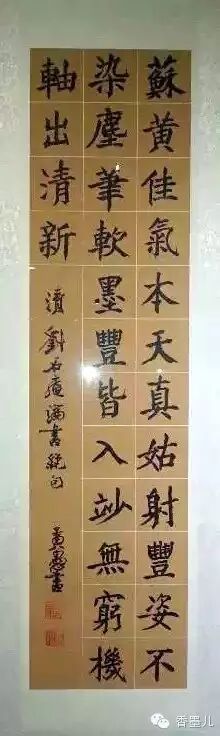 蘇黃佳氣本天真姑射豐姿不
染塵筆軟墨豐皆入玅無窮機
軸出清新
清劉石庵論書絕句
書
香墨儿